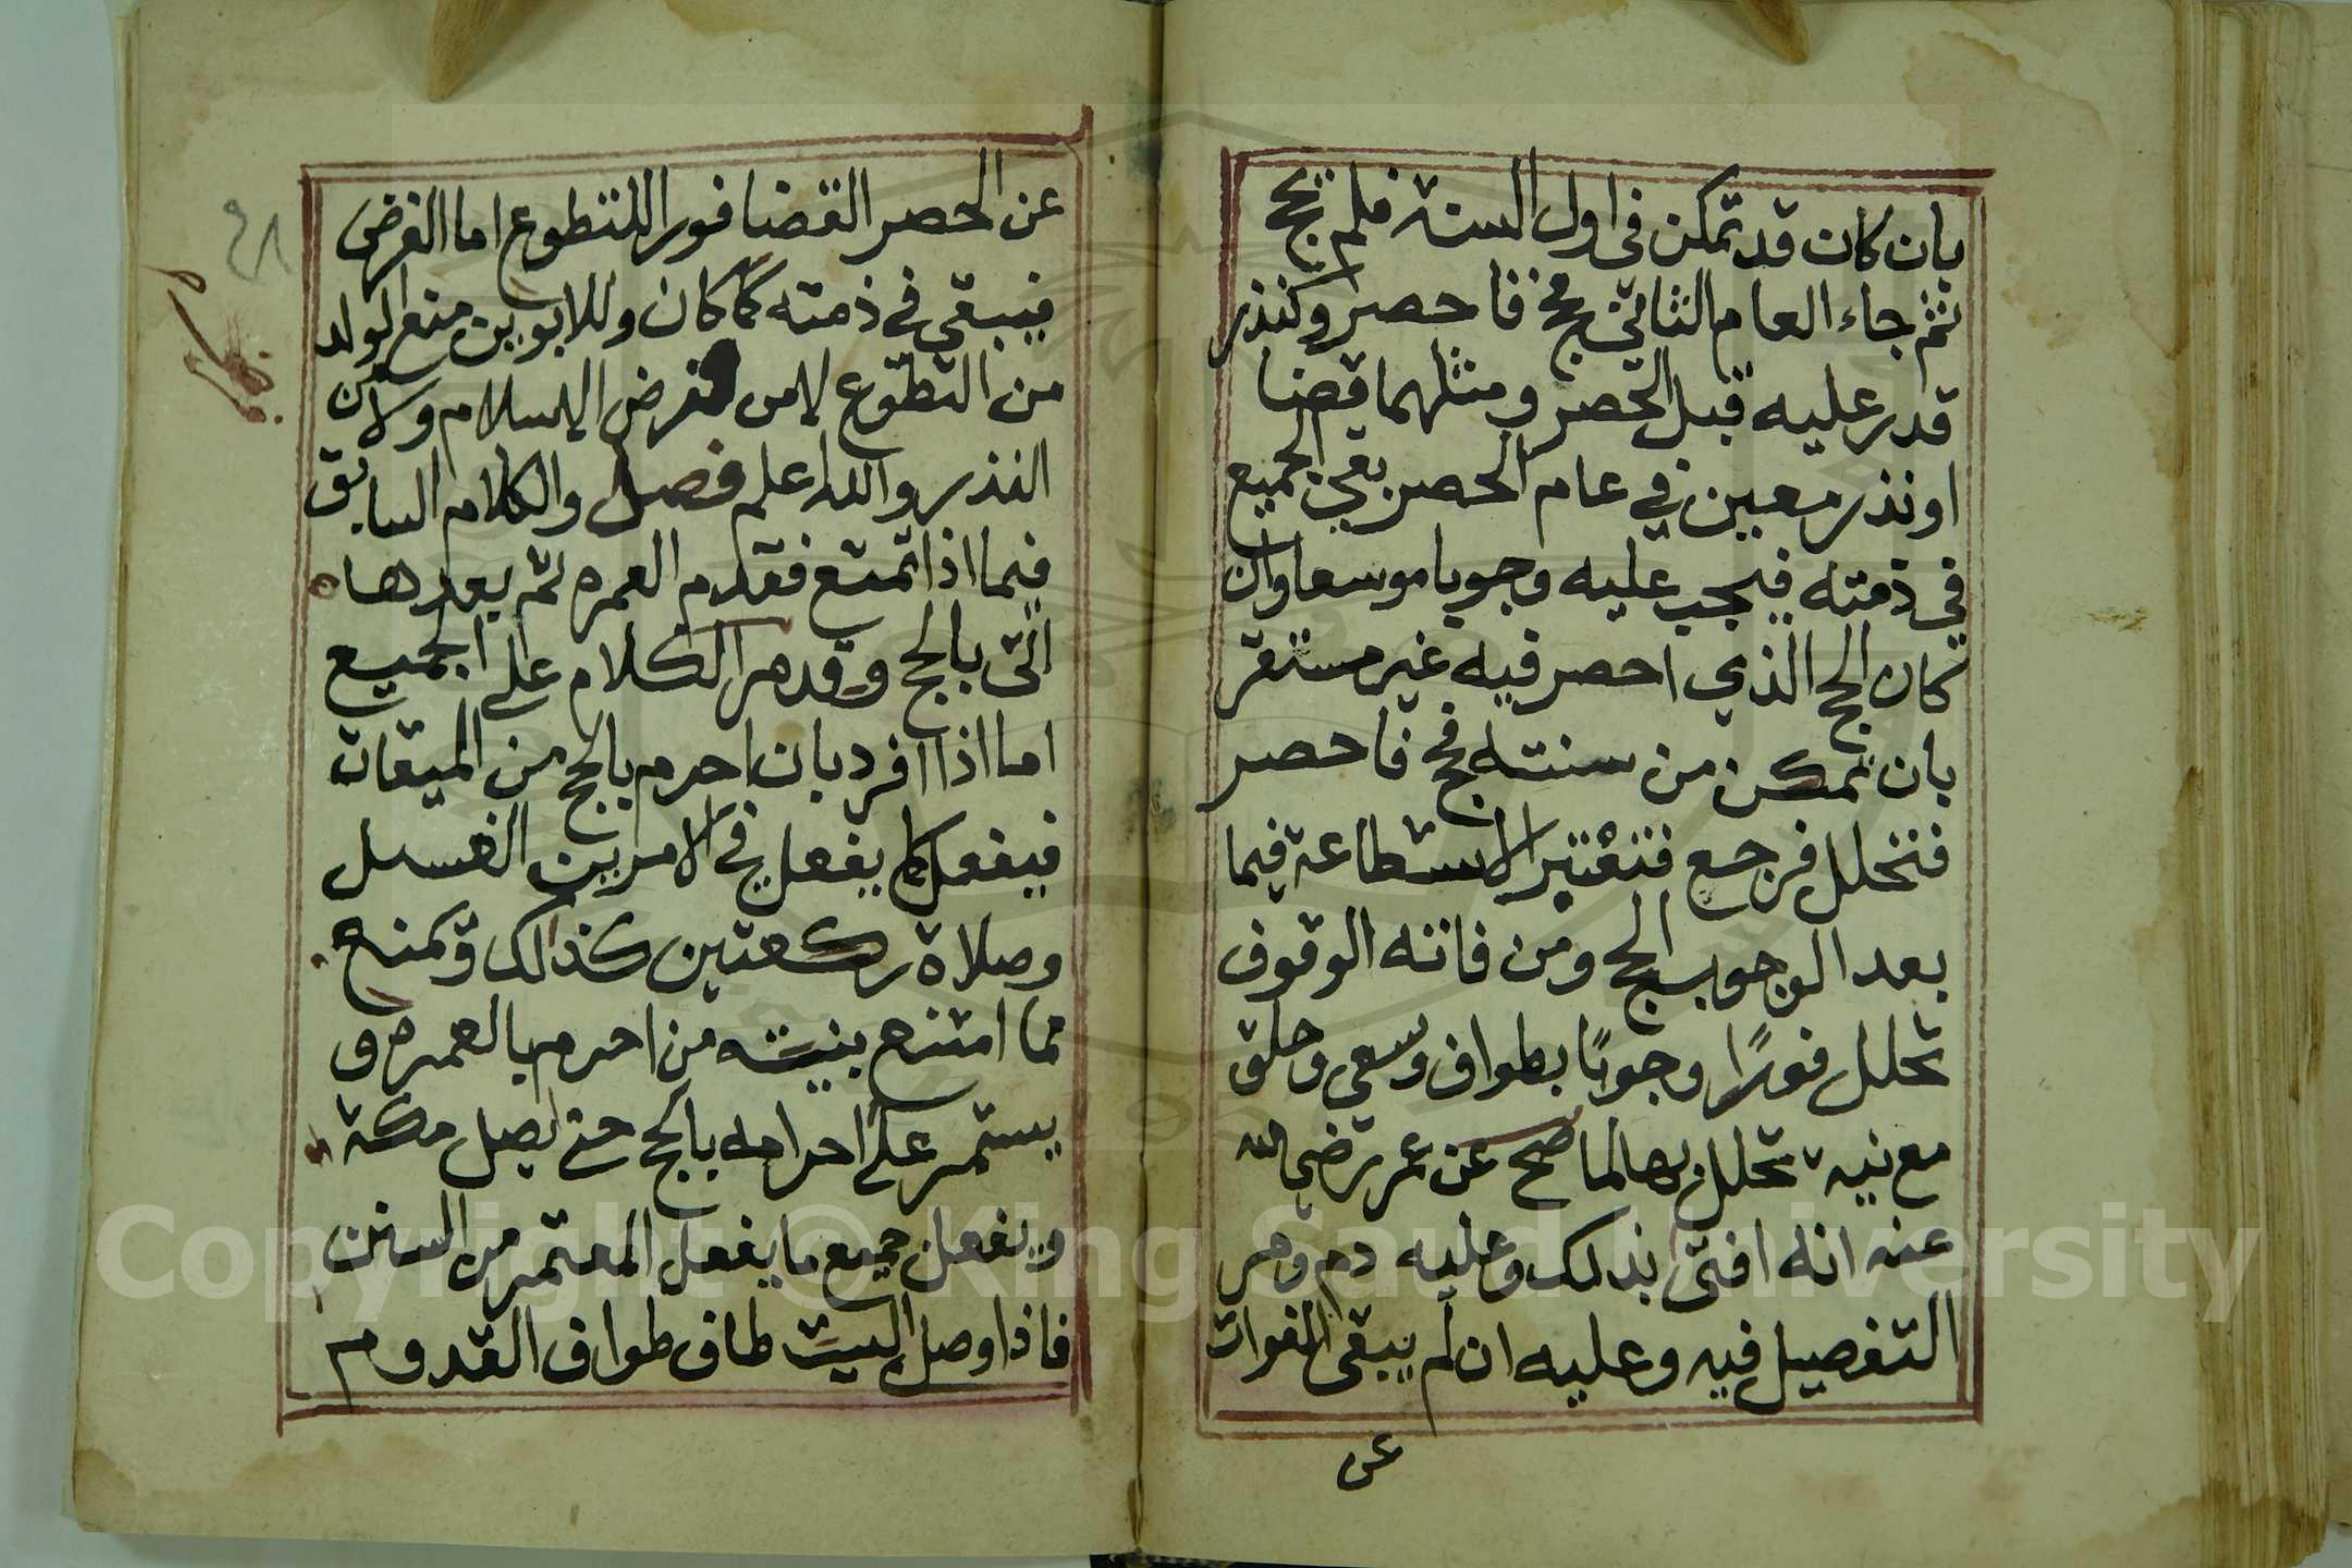 بان كان قد تمكن في اول السنة فلم يحج
ثم جاء العام الثاني فحج فاحصر وكنذر
قدر عليه قبل الحصر ومثلهما قضا
او نذر معين في عام الحصر بقي الجميع
في ذمته فيجب عليه وجوبا موسعا وان
كان الحج الذي احصر فيه غير مستقر
بان تمكن من سنته فحج فاحصر
فتحلل فرجع فتعتبر الاستطاعة فيما
بعد الوجوب الحج ومن فاته الوقوف
تحلل فورًا وجوبًا بطواف وسعي وحلق
مع نية تحلل بها لما صح عن عمر رضي الله
عنه انه افتى بذلك وعليه دم ومر
التفصيل فيه وعليه ان لم يبقى الفوات
عن
عن الحصر القضا فورا للتطوع اما الفرض
فيبقى في ذمته كما كان وللابوين منع الولد
من التطوع لا من فرض الاسلام ولا من
النذر والله اعلم فصل والكلام السابق
فيما اذا تمتع فقدم العمره ثم بعدها
اتى بالحج وقد مر الكلام على الجميع
اما اذا افرد بان احرم بالحج من الميقات
فيفعل كما يفعل في الامرين الغسل
وصلاة ركعتين كذالك ويمتنع
مما امتنع بنيته من احرم بالعمره و
يستمر على احرامه بالحج حتى يصل مكة
ويفعل جميع ما يفعل المعتمر من السنن
فاذا وصل البيت طاف طواف القدوم
٤٨
Copyright © King Saud University